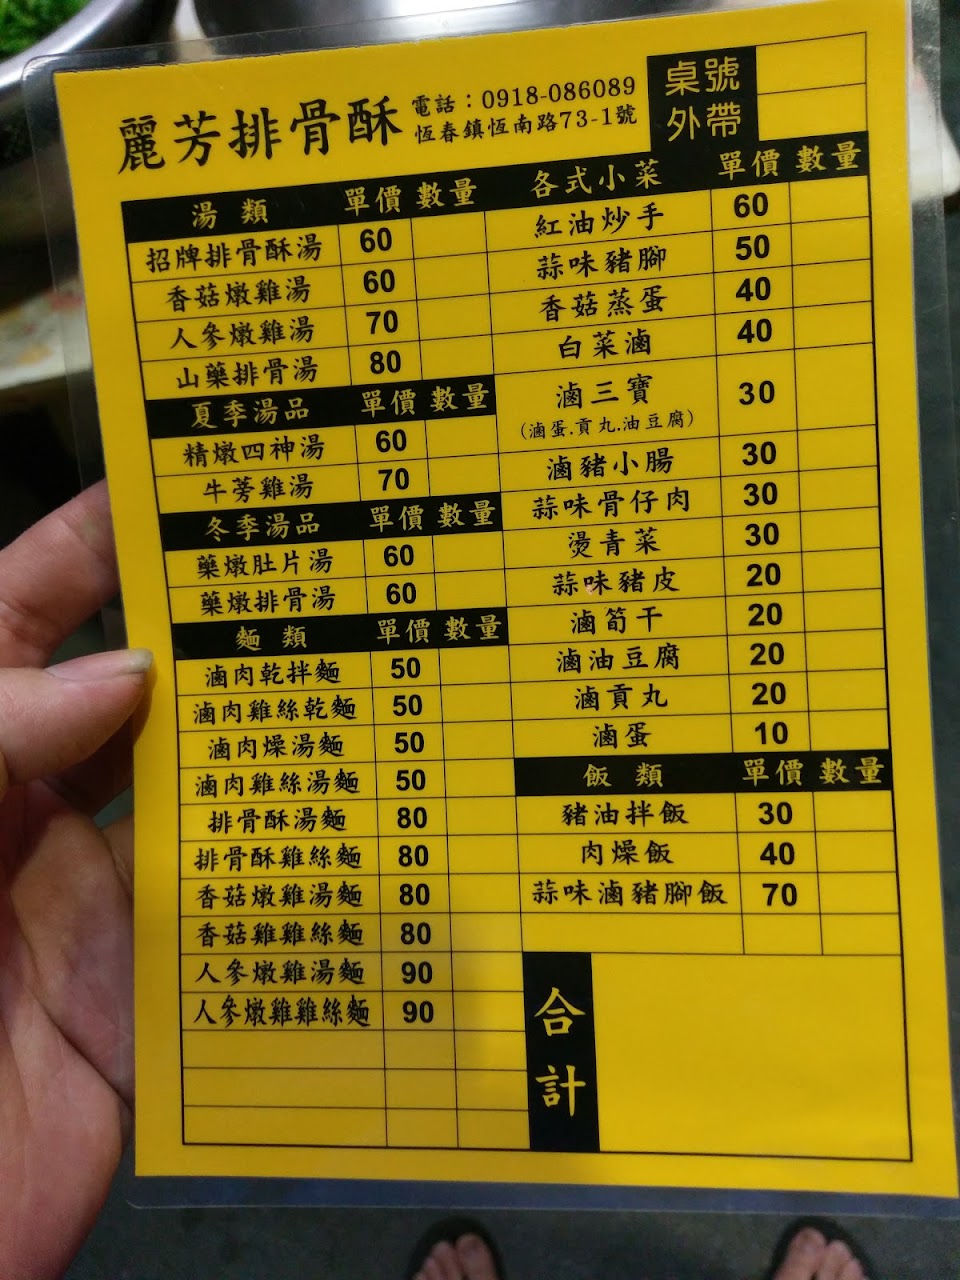 麗芳排骨酥
電話：0918-086089
恆春鎮恆南路73-1號
桌號
外帶
湯類 單價 數量
招牌排骨酥湯 60
香菇燉雞湯 60
人參燉雞湯 70
山藥排骨湯 80
夏季湯品 單價 數量
精燉四神湯 60
牛蒡雞湯 70
冬季湯品 單價 數量
藥燉肚片湯 60
藥燉排骨湯 60
麵類 單價 數量
滷肉乾拌麵 50
滷肉雞絲乾麵 50
滷肉燥湯麵 50
滷肉雞絲湯麵 50
排骨酥湯麵 80
排骨酥雞絲麵 80
香菇燉雞湯麵 80
香菇雞雞絲麵 80
人參燉雞湯麵 90
人參燉雞雞絲麵 90
各式小菜 單價 數量
紅油炒手 60
蒜味豬腳 50
香菇蒸蛋 40
白菜滷 40
滷三寶 30
(滷蛋.貢丸.油豆腐)
滷豬小腸 30
蒜味骨仔肉 30
燙青菜 30
蒜味豬皮 20
滷筍干 20
滷油豆腐 20
滷貢丸 20
滷蛋 10
飯類 單價 數量
豬油拌飯 30
肉燥飯 40
蒜味滷豬腳飯 70
合計